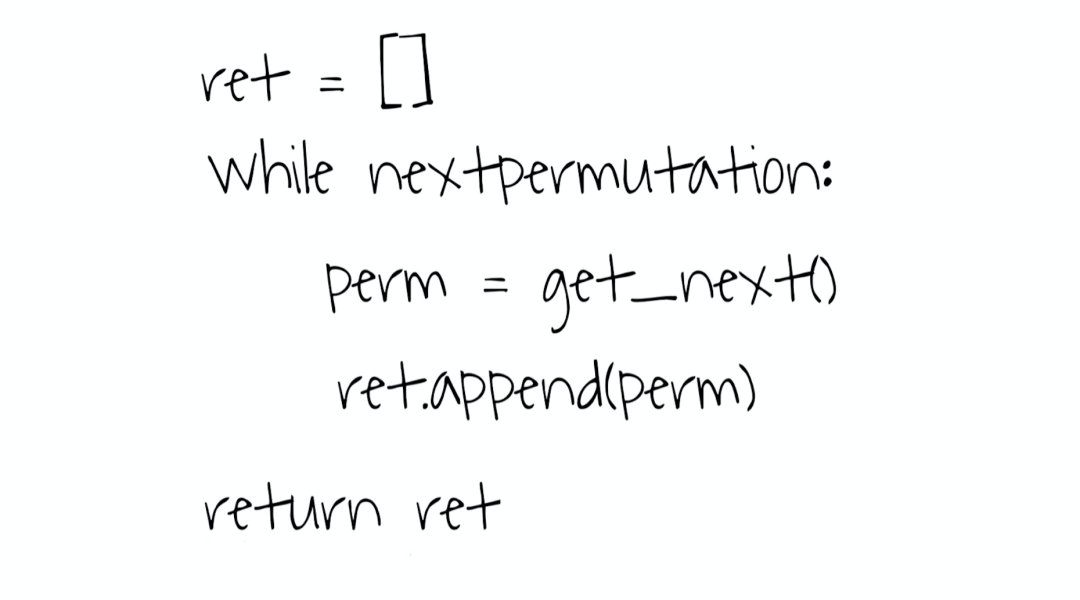 ret = []
while nextpermutation:
perm = get_next()
ret.append(perm)
return ret